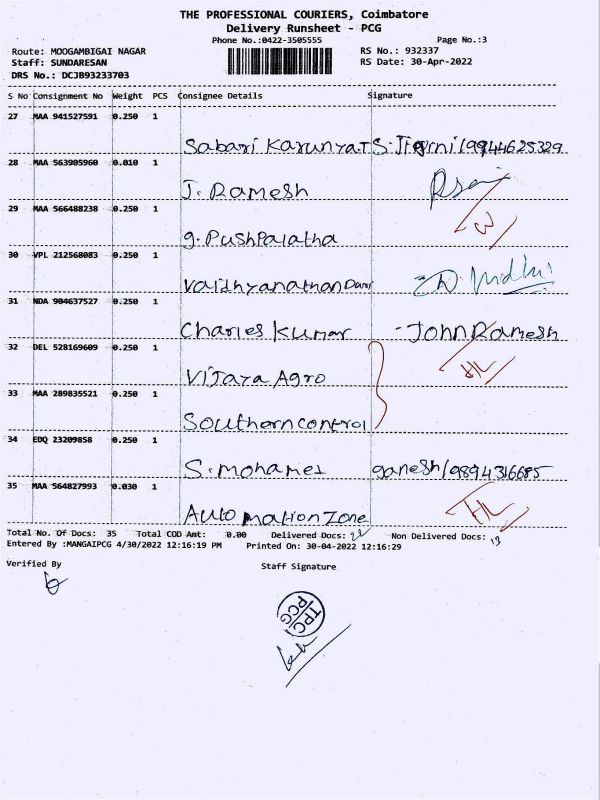 THE PROFESSIONAL COURIERS, Coimbatore
Delivery Runsheet - PCG
Phone No.:0422-3505555 Page No.:3
Route: MOOGAMBIGAI NAGAR RS No.: 932337
Staff: SUNDARESAN RS Date: 30-Apr-2022
DRS No.: DCJB93233703
S No Consignment No Weight PCS Consignee Details Signature
27 MAA 941527591 0.250 1
Sabari Karunya.T S. /9944625329
28 MAA 563905960 0.010 1
J. Ramesh
29 MAA 566488238 0.250 1
g. Pushpalatha
30 VPL 212568083 0.250 1
Vaidhyanathan
31 NDA 904637527 0.250 1
Charles Kumar - John Ramesh
32 DEL 528169609 0.250 1
Vijaya Agro
33 MAA 289835521 0.250 1
Southern control
34 EDQ 23209858 0.250 1
S. mohamed ganesh/9894316685
35 MAA 564827993 0.030 1
Automation Zone
Total No. Of Docs: 35 Total COD Amt: 0.00 Delivered Docs: 22 Non Delivered Docs: 13
Entered By :MANGAIPCG 4/30/2022 12:16:19 PM Printed On: 30-04-2022 12:16:29
Verified By Staff Signature
TPC
PCG